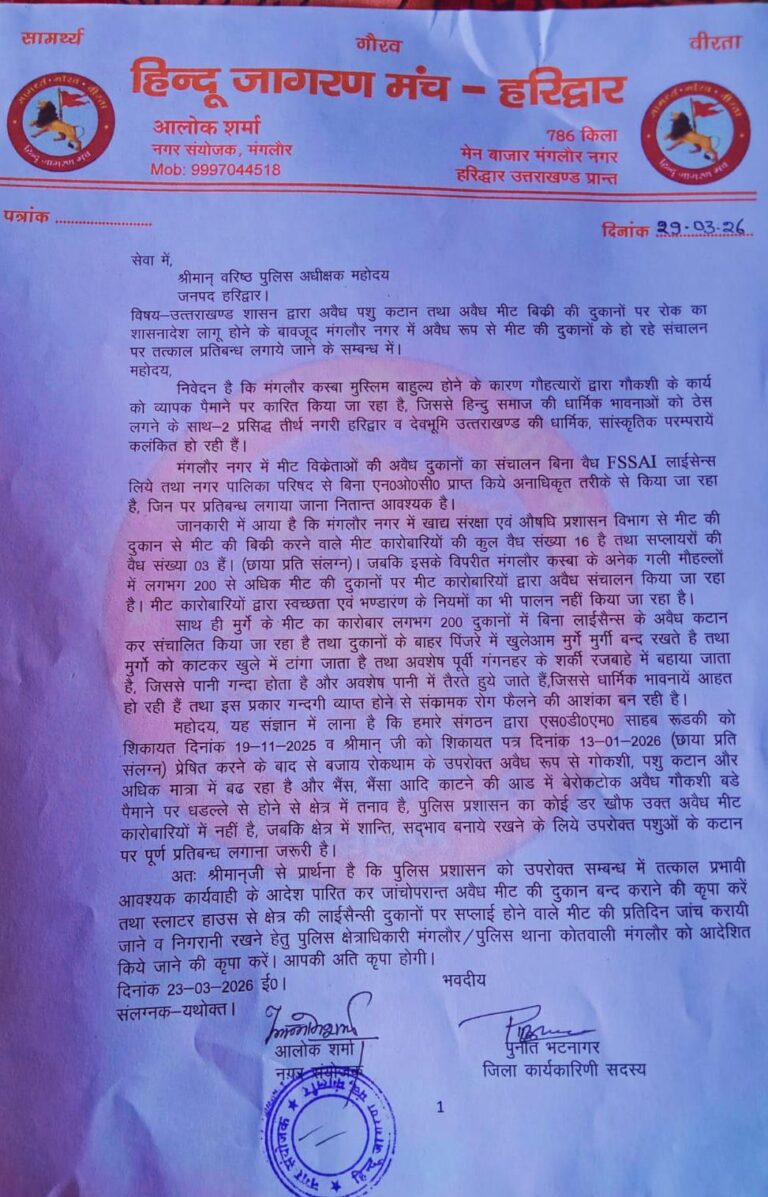 सामर्थ्य
गौरव
वीरता
हिन्दू जागरण मंच - हरिद्वार
आलोक शर्मा
नगर संयोजक, मंगलौर
Mob: 9997044518
786 किला
मेन बाजार मंगलौर नगर
हरिद्वार उत्तराखण्ड प्रान्त
पत्रांक ........................
दिनांक 29-03-26
सेवा में,
श्रीमान् वरिष्ठ पुलिस अधीक्षक महोदय
जनपद हरिद्वार।
विषय–उत्तराखण्ड शासन द्वारा अवैध पशु कटान तथा अवैध मीट बिक्री की दुकानों पर रोक का
शासनादेश लागू होने के बावजूद मंगलौर नगर में अवैध रूप से मीट की दुकानों के हो रहे संचालन
पर तत्काल प्रतिबन्ध लगाये जाने के सम्बन्ध में।
महोदय,
निवेदन है कि मंगलौर कस्बा मुस्लिम बाहुल्य होने के कारण गौहत्यारों द्वारा गौकशी के कार्य
को व्यापक पैमाने पर कारित किया जा रहा है, जिससे हिन्दु समाज की धार्मिक भावनाओं को ठेस
लगने के साथ–2 प्रसिद्व तीर्थ नगरी हरिद्वार व देवभूमि उत्तराखण्ड की धार्मिक, सांस्कृतिक परम्परायें
कलंकित हो रही हैं।
मंगलौर नगर में मीट विक्रेताओं की अवैध दुकानों का संचालन बिना वैध FSSAI लाईसेन्स
लिये तथा नगर पालिका परिषद से बिना एन0ओ0सी0 प्राप्त किये अनाधिकृत तरीके से किया जा रहा
है, जिन पर प्रतिबन्ध लगाया जाना नितान्त आवश्यक है।
जानकारी में आया है कि मंगलौर नगर में खाद्य संरक्षा एवं औषधि प्रशासन विभाग से मीट की
दुकान से मीट की बिकी करने वाले मीट कारोबारियों की कुल वैध संख्या 16 है तथा सप्लायरों की
वैध संख्या 03 हैं। (छाया प्रति संलग्न)। जबकि इसके विपरीत मंगलौर कस्बा के अनेक गली मौहल्लों
में लगभग 200 से अधिक मीट की दुकानों पर मीट कारोबारियों द्वारा अवैध संचालन किया जा रहा
है। मीट कारोबारियों द्वारा स्वच्छता एवं भण्डारण के नियमों का भी पालन नहीं किया जा रहा है।
साथ ही मुर्गे के मीट का कारोबार लगभग 200 दुकानों में बिना लाईसैन्स के अवैध कटान
कर संचालित किया जा रहा है तथा दुकानों के बाहर पिंजरे में खुलेआम मुर्गे मुर्गी बन्द रखते है तथा
मुर्गो को काटकर खुले में टांगा जाता है तथा अवशेष पूर्वी गंगनहर के शर्की रजबाहे में बहाया जाता
है, जिससे पानी गन्दा होता है और अवशेष पानी में तैरते हुये जाते हैं,जिससे धार्मिक भावनायें आहत
हो रही हैं तथा इस प्रकार गन्दगी व्याप्त होने से संक्रामक रोग फैलने की आशंका बन रही है।
महोदय, यह संज्ञान में लाना है कि हमारे संगठन द्वारा एस0डी0एम0 साहब रूडकी को
शिकायत दिनांक 19-11-2025 व श्रीमान् जी को शिकायत पत्र दिनांक 13-01-2026 (छाया प्रति
संलग्न) प्रेषित करने के बाद से बजाय रोकथाम के उपरोक्त अवैध रूप से गोकशी, पशु कटान और
अधिक मात्रा में बढ रहा है और भैंस, भैंसा आदि काटने की आड में बेरोकटोक अवैध गौकशी बडे
पैमाने पर धडल्ले से होने से क्षेत्र में तनाव है, पुलिस प्रशासन का कोई डर खौफ उक्त अवैध मीट
कारोबारियों में नहीं है, जबकि क्षेत्र में शान्ति, सद्भाव बनाये रखने के लिये उपरोक्त पशुओं के कटान
पर पूर्ण प्रतिबन्ध लगाना जरूरी है।
अतः श्रीमान्जी से प्रार्थना है कि पुलिस प्रशासन को उपरोक्त सम्बन्ध में तत्काल प्रभावी
आवश्यक कार्यवाही के आदेश पारित कर जांचोपरान्त अवैध मीट की दुकान बन्द कराने की कृपा करें
तथा स्लाटर हाउस से क्षेत्र की लाईसैन्सी दुकानों पर सप्लाई होने वाले मीट की प्रतिदिन जांच करायी
जाने व निगरानी रखने हेतु पुलिस क्षेत्राधिकारी मंगलौर/पुलिस थाना कोतवाली मंगलौर को आदेशित
किये जाने की कृपा करें। आपकी अति कृपा होगी।
दिनांक 23-03-2026 ई0।
भवदीय
संलग्नक–यथोक्त।
आलोक शर्मा
नगर संयोजक
पुनीत भटनागर
जिला कार्यकारिणी सदस्य
1